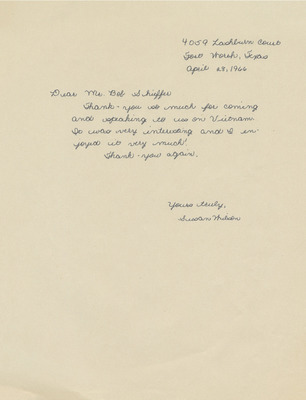 4059 Lashburn Court
Fort Worth, Texas
April 28, 1966
Dear Mr. Bob Shieffer
Thank-you so much for coming
and speaking to us on Vietnam.
It was very interesting and I en-
joyed it very much.
Thank-you again.
Yours truly,
Susan Wilson